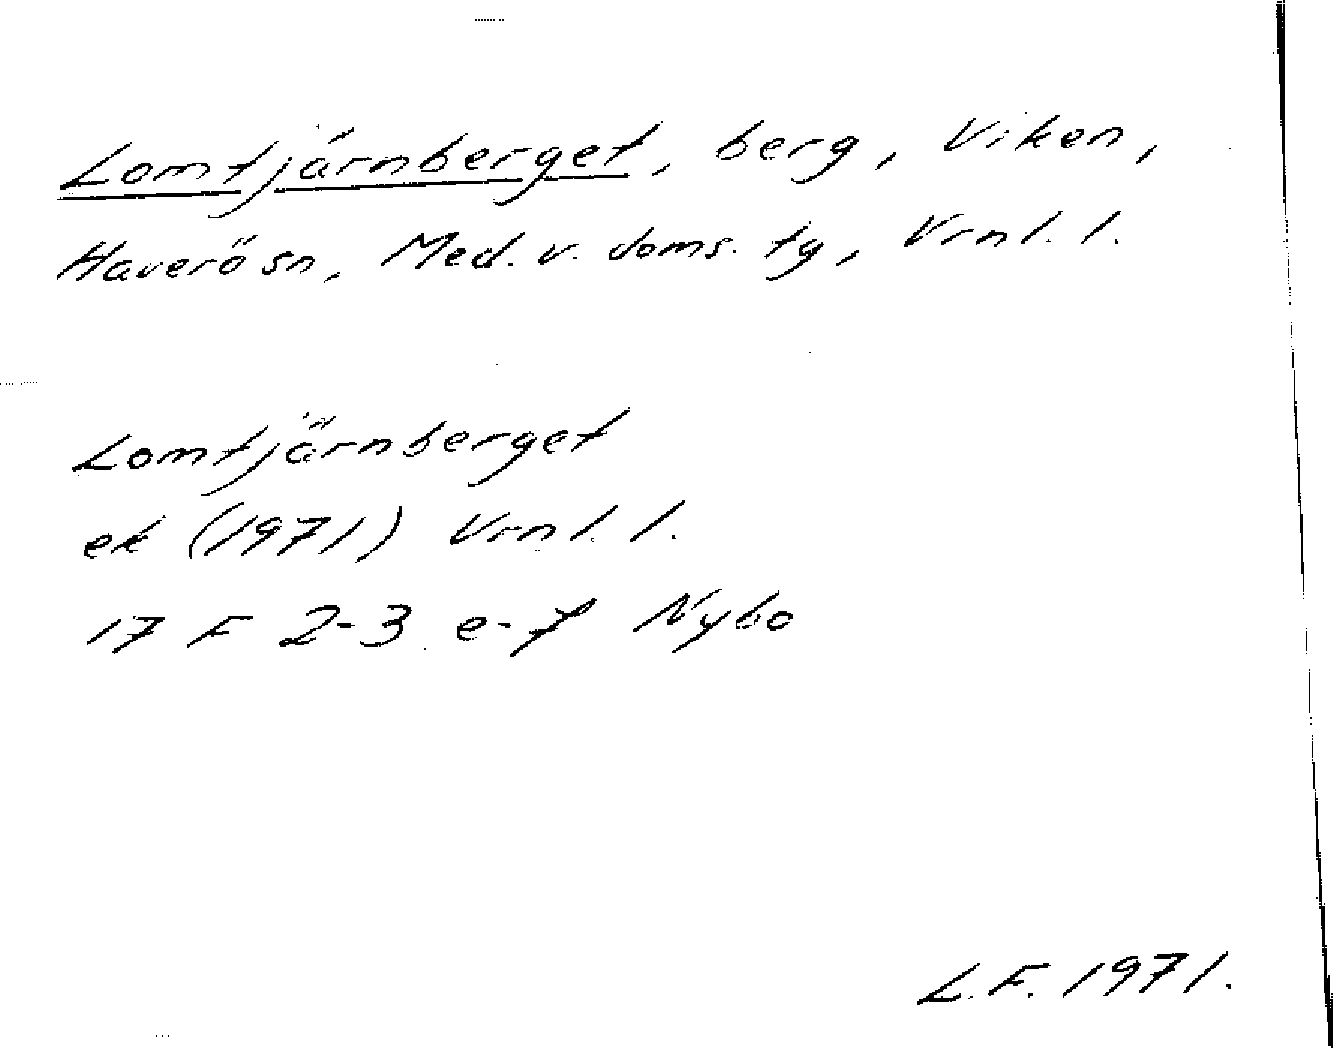 Lomtjärnberget, berg, Viken,
Haverö sn, Med. v. doms. tg, Vrnl. l.
Lomtjärnberget
ek (1971) Vrnl. l.
17 F 2-3 e-f Nybo
L.F. 1971.